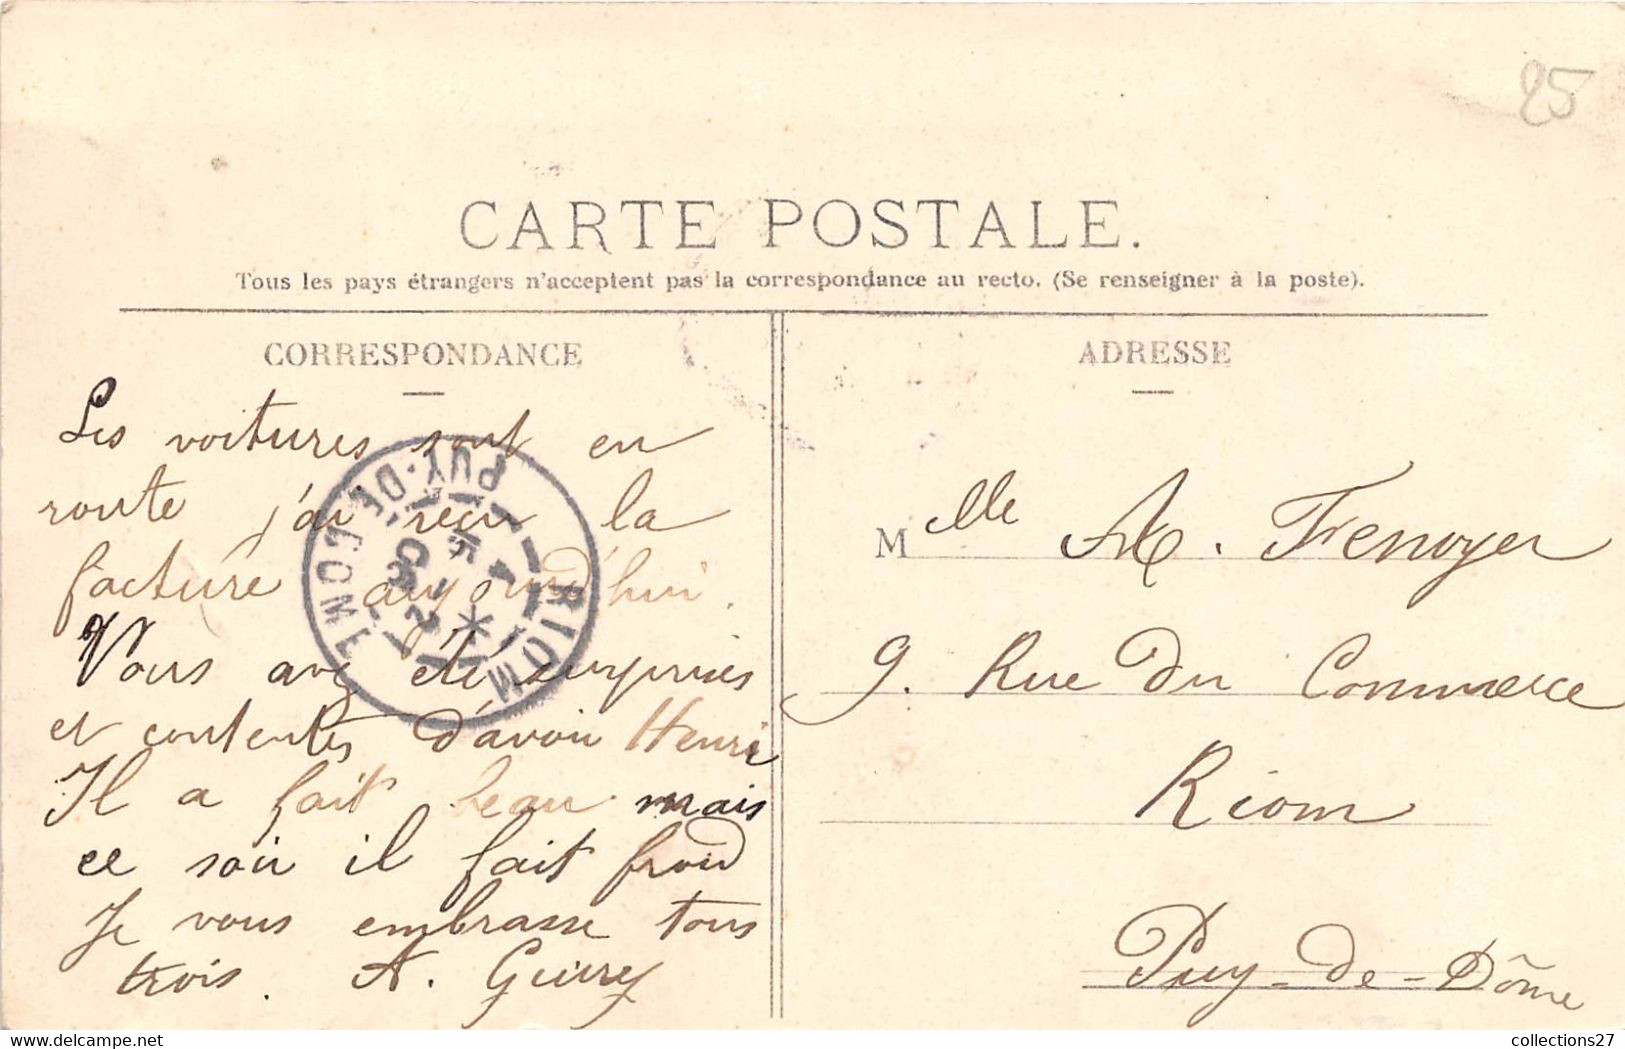 25
CARTE POSTALE.
Tous les pays étrangers n'acceptent pas la correspondance au recto. (Se renseigner à la poste).
CORRESPONDANCE
Les voitures sont en
route j'ai reçu la
facture aujourd'hui.
Vous avez été surprises
et contentes d'avoir Henri
Il a fait beau mais
ce soir il fait froid
Je vous embrasse tous
trois. A.
RIOM
PUY-DE-DOME
ADRESSE
Mlle A. Fenoyer
9. Rue du Commerce
Riom
Puy-de-Dôme
collections27